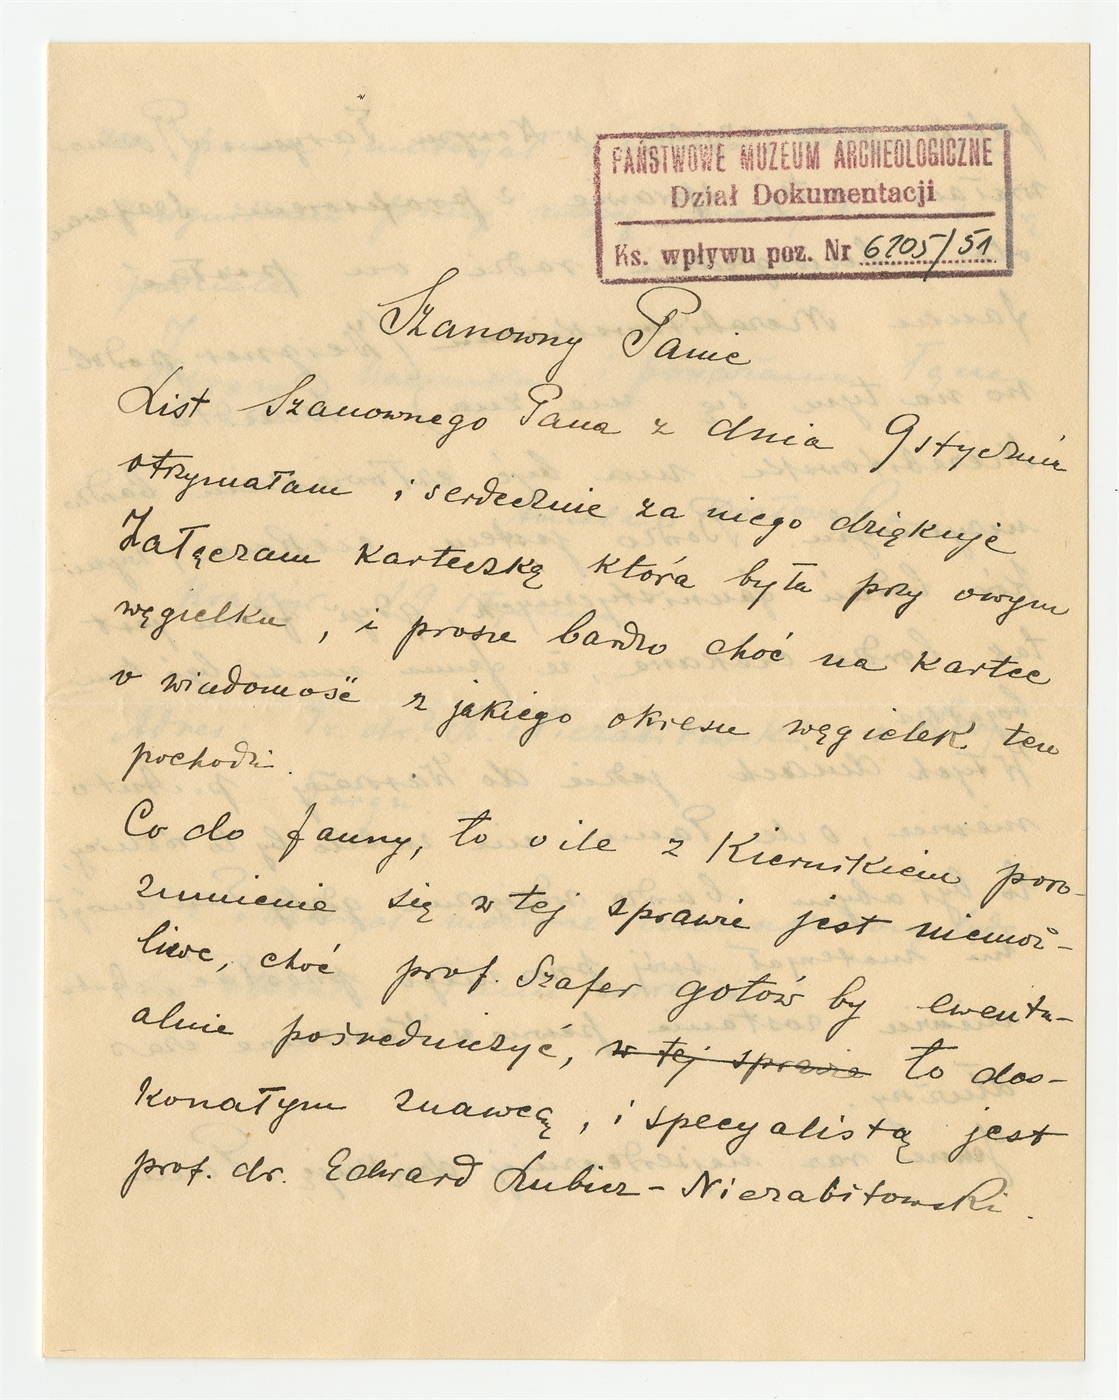 PAŃSTWOWE MUZEUM ARCHEOLOGICZNE
Dział Dokumentacji
Ks. wpływu poz. Nr 6205/51
Szanowny Panie
List Szanownego Pana z dnia 9 stycznia
otrzymałam i serdecznie za niego dziękuje
Załączam karteczką która była przy owym
węgielku, i prosze bardzo choć na kartce
o wiadomość z jakiego okresu węgielek ten
pochodzi.
Co do fauny, to o ile z Kiernikiem poro-
zumienie się w tej sprawie jest niemoż-
liwe, choć prof. Szafer gotów by ewentu-
alnie pośredniczyć, w tej sprawie to dos-
konałym znawcą, i specyalistą jest
prof. dr. Edward Lubicz-Niezabitowski.